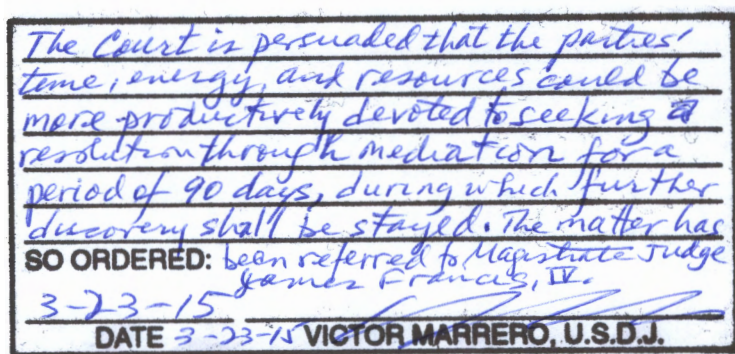 The Court is persuaded that the parties'
time, energy, and resources could be
more productively devoted to seeking a
resolution through mediation for a
period of 90 days, during which further
discovery shall be stayed. The matter has
SO ORDERED: been referred to Magistrate Judge
James Francis, IV.
3-23-15
DATE 3-23-15 VICTOR MARRERO, U.S.D.J.